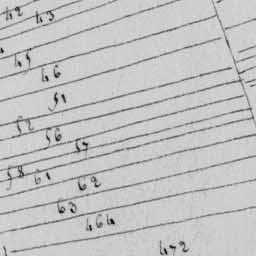 42 43
45
46
51
52
56
57
58
61
62
63
464
472